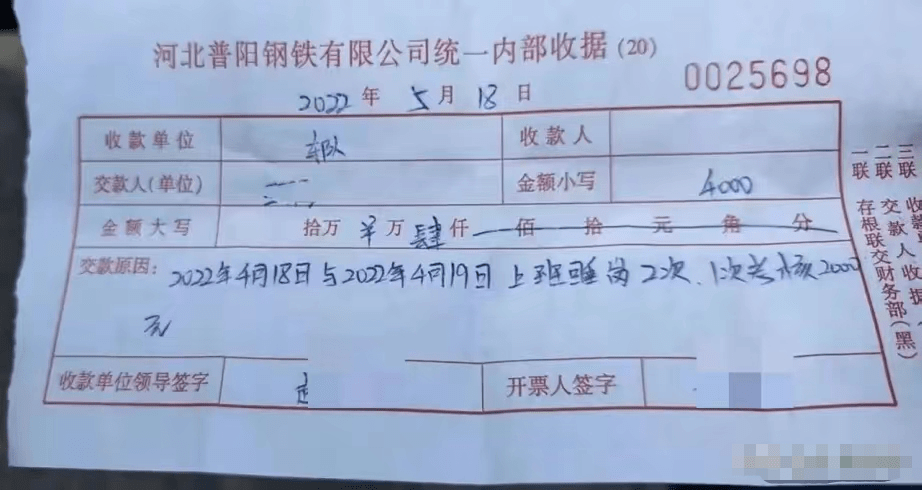 河北普阳钢铁有限公司统一内部收据(20)
0025698
2022年5月18日
收款单位 车队 收款人
交款人(单位) 金额小写 4000
金额大写 拾万 ¥万 肆仟 佰 拾 元 角 分
交款原因: 2022年4月18日与2022年4月19日上班睡岗2次、1次考核2000
元
收款单位领导签字 开票人签字
一联 存根联交财务部(黑
二联 交款人收据
三联 收款